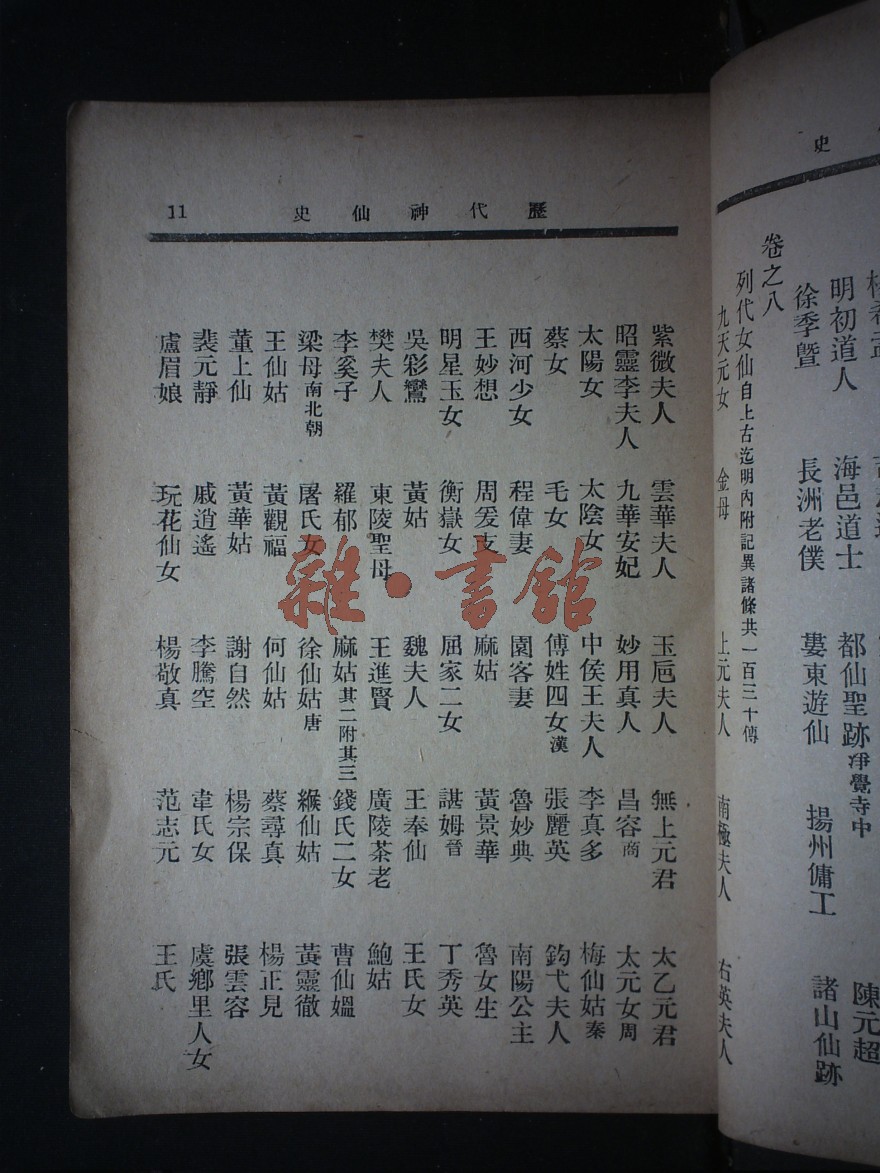 史
明初道人　海邑道士　都仙聖跡淨覺寺中　陳元超
徐季暨　長洲老僕　婁東遊仙　揚州傭工　諸山仙跡
卷之八
列代女仙自上古迄明內附記異諸條共一百三十傳
九天元女　金母　上元夫人　南極夫人　右英夫人
歷代神仙史　11
紫微夫人　雲華夫人　玉巵夫人　無上元君　太乙元君
昭靈李夫人　九華安妃　妙用真人　昌容商　太元女周
太陽女　太陰女　中侯王夫人　李真多　梅仙姑秦
蔡女　毛女　傅姓四女漢　張麗英　鈎弋夫人
西河少女　程偉妻　園客妻　魯妙典　南陽公主
王妙想　周爰支　麻姑　黃景華　魯女生
明星玉女　衡嶽女　屈家二女　諶姆晉　丁秀英
吳彩鸞　黃姑　魏夫人　王奉仙　王氏女
樊夫人　東陵聖母　王進賢　廣陵茶老　鮑姑
李奚子　羅郁　麻姑其二附其三　錢氏二女　曹仙媼
梁母南北朝　屠氏女　徐仙姑唐　緱仙姑　黃靈徹
王仙姑　黃觀福　何仙姑　蔡尋真　楊正見
董上仙　黃華姑　謝自然　楊宗保　張雲容
裴元靜　戚逍遙　李騰空　韋氏女　虞鄉里人女
盧眉娘　玩花仙女　楊敬真　范志元　王氏
雜·書館